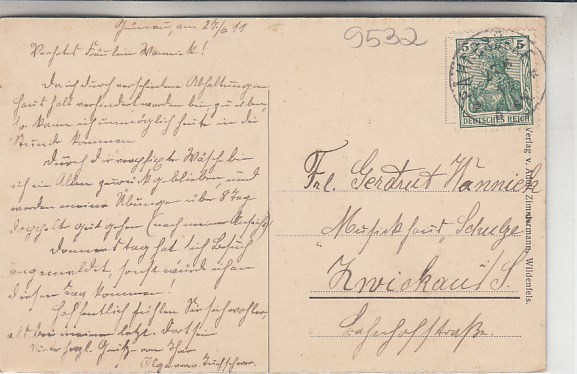 am 27/6 11
9532
Verehrtes Fräulein Wannick!
Da ich durch verschiedene Abhaltungen
verhindert worden bin, zu üben,
so kann ich unmöglich heute in die
Stunde kommen.
Durch die Wäsche bin
ich in Allem zurückgeblieben, und
werden meine Übungen über 8 Tag
doppelt gut gehen (nach meiner
Donnerstag hat sich Besuch
angemeldet, sonst würde ich an
diesem Tag kommen!
Hoffentlich fühlen Sie sich wohler
als bei meinem letzt. Dortsein
herzl. Grüße von Ihrer
Olga
5 5
DEUTSCHES REICH
Frl. Gertrut Wannick
"Musickhaus" Schulze
Zwickau i/S.
Bahnhofstraße.
Verlag v. Zimmermann, Wildenfels.